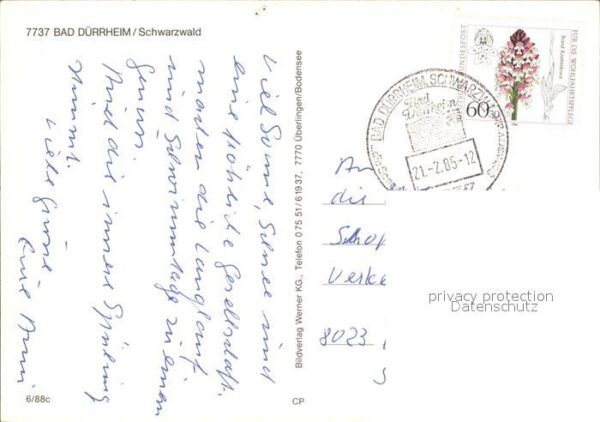 7737 BAD DÜRRHEIM / Schwarzwald
Viel Sonne, Schnee und
eine fröhliche Gesellschaft
machen die Langlauf-
und Schwimmtage zu einem
Genuss.
Und die innere Spülung
stimmt.
Liebe Grüsse
6/88c
CP
Bildverlag Werner KG., Telefon 0 75 51 / 6 19 37, 7770 Überlingen/Bodensee
BAD DÜRRHEIM, SCHWARZW
Bad
Dürrheim
21.-2.85-12
60
DEUTSCHE BUNDESPOST
FÜR DIE WOHLFAHRTSPFLEGE
Brand-Knabenkraut
An
die
Verke
8023
privacy protection
Datenschutz